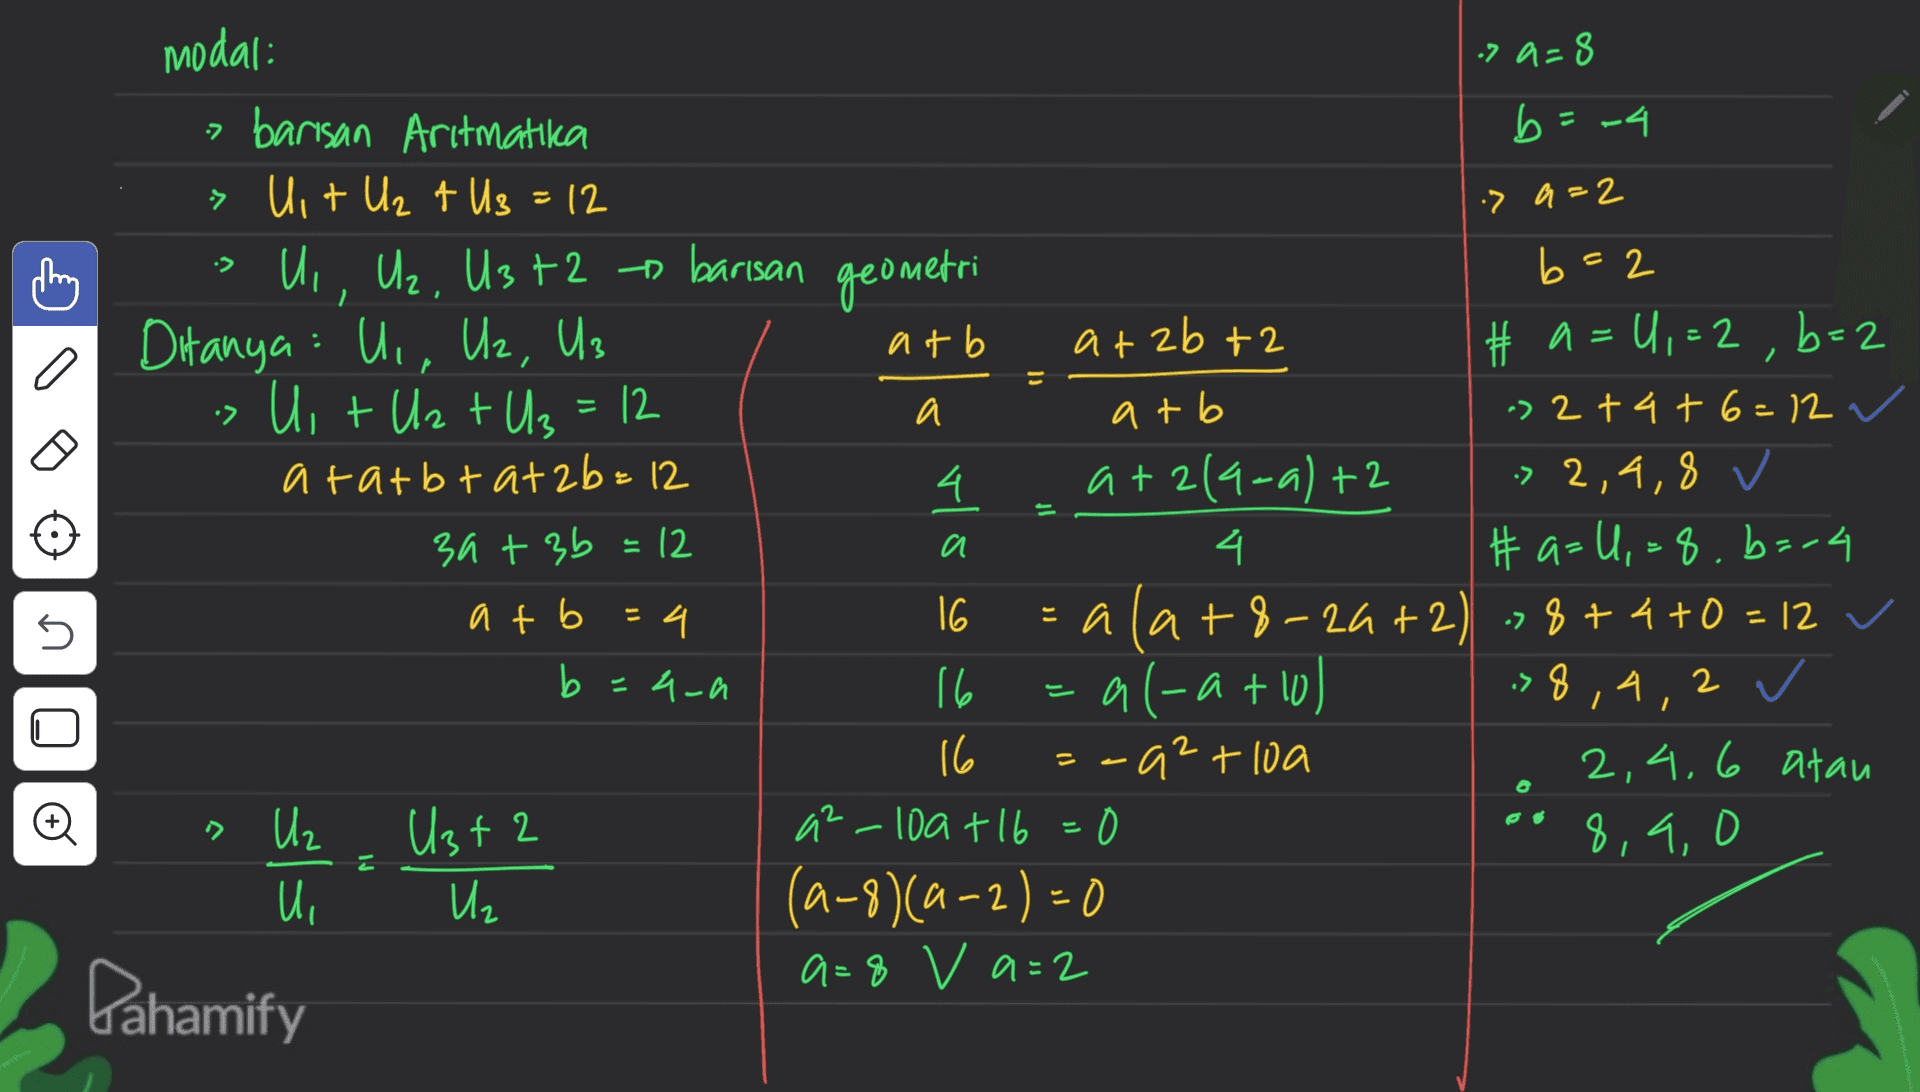 modal:
-> barisan Aritmatika
-> U₁ + U₂ + U₃ = 12
-> U₁, U₂, U₃ + 2 → barisan geometri
Ditanya : U₁, U₂, U₃
-> U₁ + U₂ + U₃ = 12
a + a + b + a + 2b = 12
3a + 3b = 12
a + b = 4
b = 4 - a
-> U₂/U₁ = (U₃ + 2)/U₂
(a + b)/a = (a + 2b + 2)/(a + b)
4/a = (a + 2(4 - a) + 2)/4
16 = a(a + 8 - 2a + 2)
16 = a(-a + 10)
16 = -a² + 10a
a² - 10a + 16 = 0
(a - 8)(a - 2) = 0
a = 8 V a = 2
-> a = 8
b = -4
-> a = 2
b = 2
# a = U₁ = 2, b = 2
-> 2 + 4 + 6 = 12 ✓
-> 2, 4, 8 ✓
# a = U₁ = 8. b = -4
-> 8 + 4 + 0 = 12 ✓
-> 8, 4, 2 ✓
∴ 2, 4, 6 atau
8, 4, 0
Pahamify